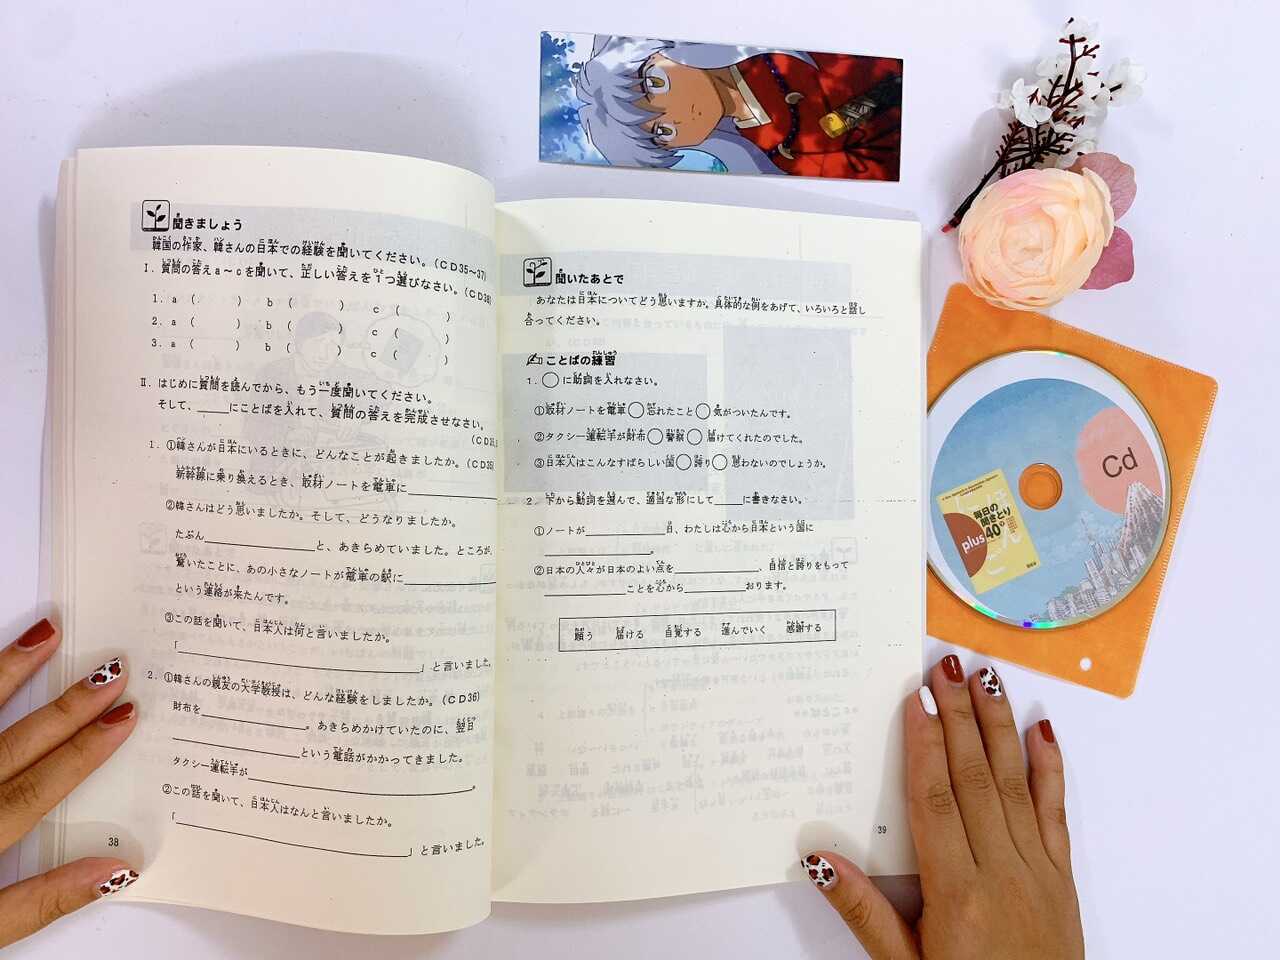 聞きましょう
韓国の作家、韓さんの日本での経験を聞いてください。(CD35~37)
Ⅰ. 質問の答えa~cを聞いて、正しい答えを1つ選びなさい。(CD38)
1. a ( ) b ( ) c ( )
2. a ( ) b ( ) c ( )
3. a ( ) b ( ) c ( )
Ⅱ. はじめに質問を読んでから、もう一度聞いてください。
そして、____にことばを入れて、質問の答えを完成させなさい。
1. ①韓さんが日本にいるときに、どんなことが起きましたか。(CD35)
新幹線に乗り換えるとき、取材ノートを電車に____
②韓さんはどう思いましたか。そして、どうなりましたか。
たぶん____と、あきらめていました。ところが、
驚いたことに、あの小さなノートが電車の駅に____
という連絡が来たんです。
③この話を聞いて、日本人は何と言いましたか。
「____」と言いました。
2. ①韓さんの親友の大学教授は、どんな経験をしましたか。(CD36)
財布を____。あきらめかけていたのに、翌日
____という電話がかかってきました。
タクシー運転手が____。
②この話を聞いて、日本人はなんと言いましたか。
「____」と言いました。
38
聞いたあとで
あなたは日本についてどう思いますか。具体的な例をあげて、いろいろと話し
合ってください。
ことばの練習
1. ○に助詞を入れなさい。
①取材ノートを電車○忘れたこと○気がついたんです。
②タクシー運転手が財布○警察○届けてくれたのでした。
③日本人はこんなすばらしい国○誇り○思わないのでしょうか。
2. 下から動詞を選んで、適当な形にして____に書きなさい。
①ノートが____日、わたしは心から日本という国に
____。
②日本の人々が日本のよい点を____、自信と誇りをもって
____ことを心から____おります。
願う 届ける 自覚する 進んでいく 感謝する
39
Cd
毎日の
聞きとり
plus40